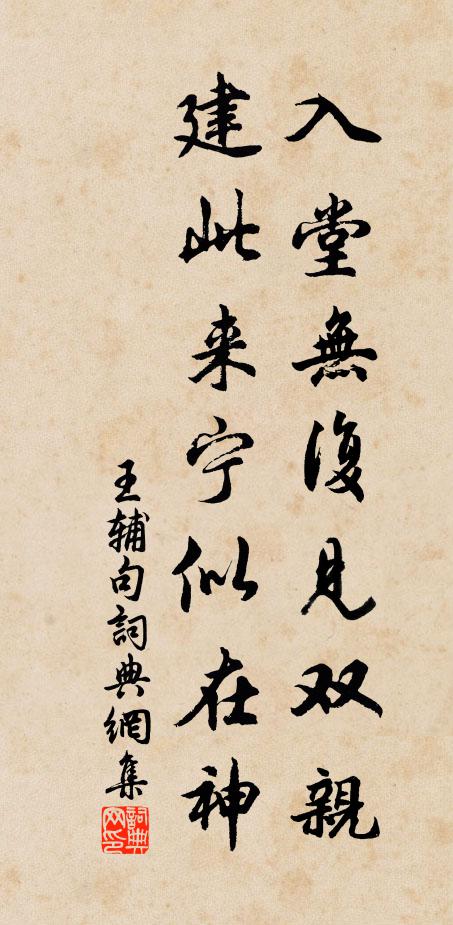 入堂無復見双親
建此来宁似在神
王辅句詞典網集
詞典网印